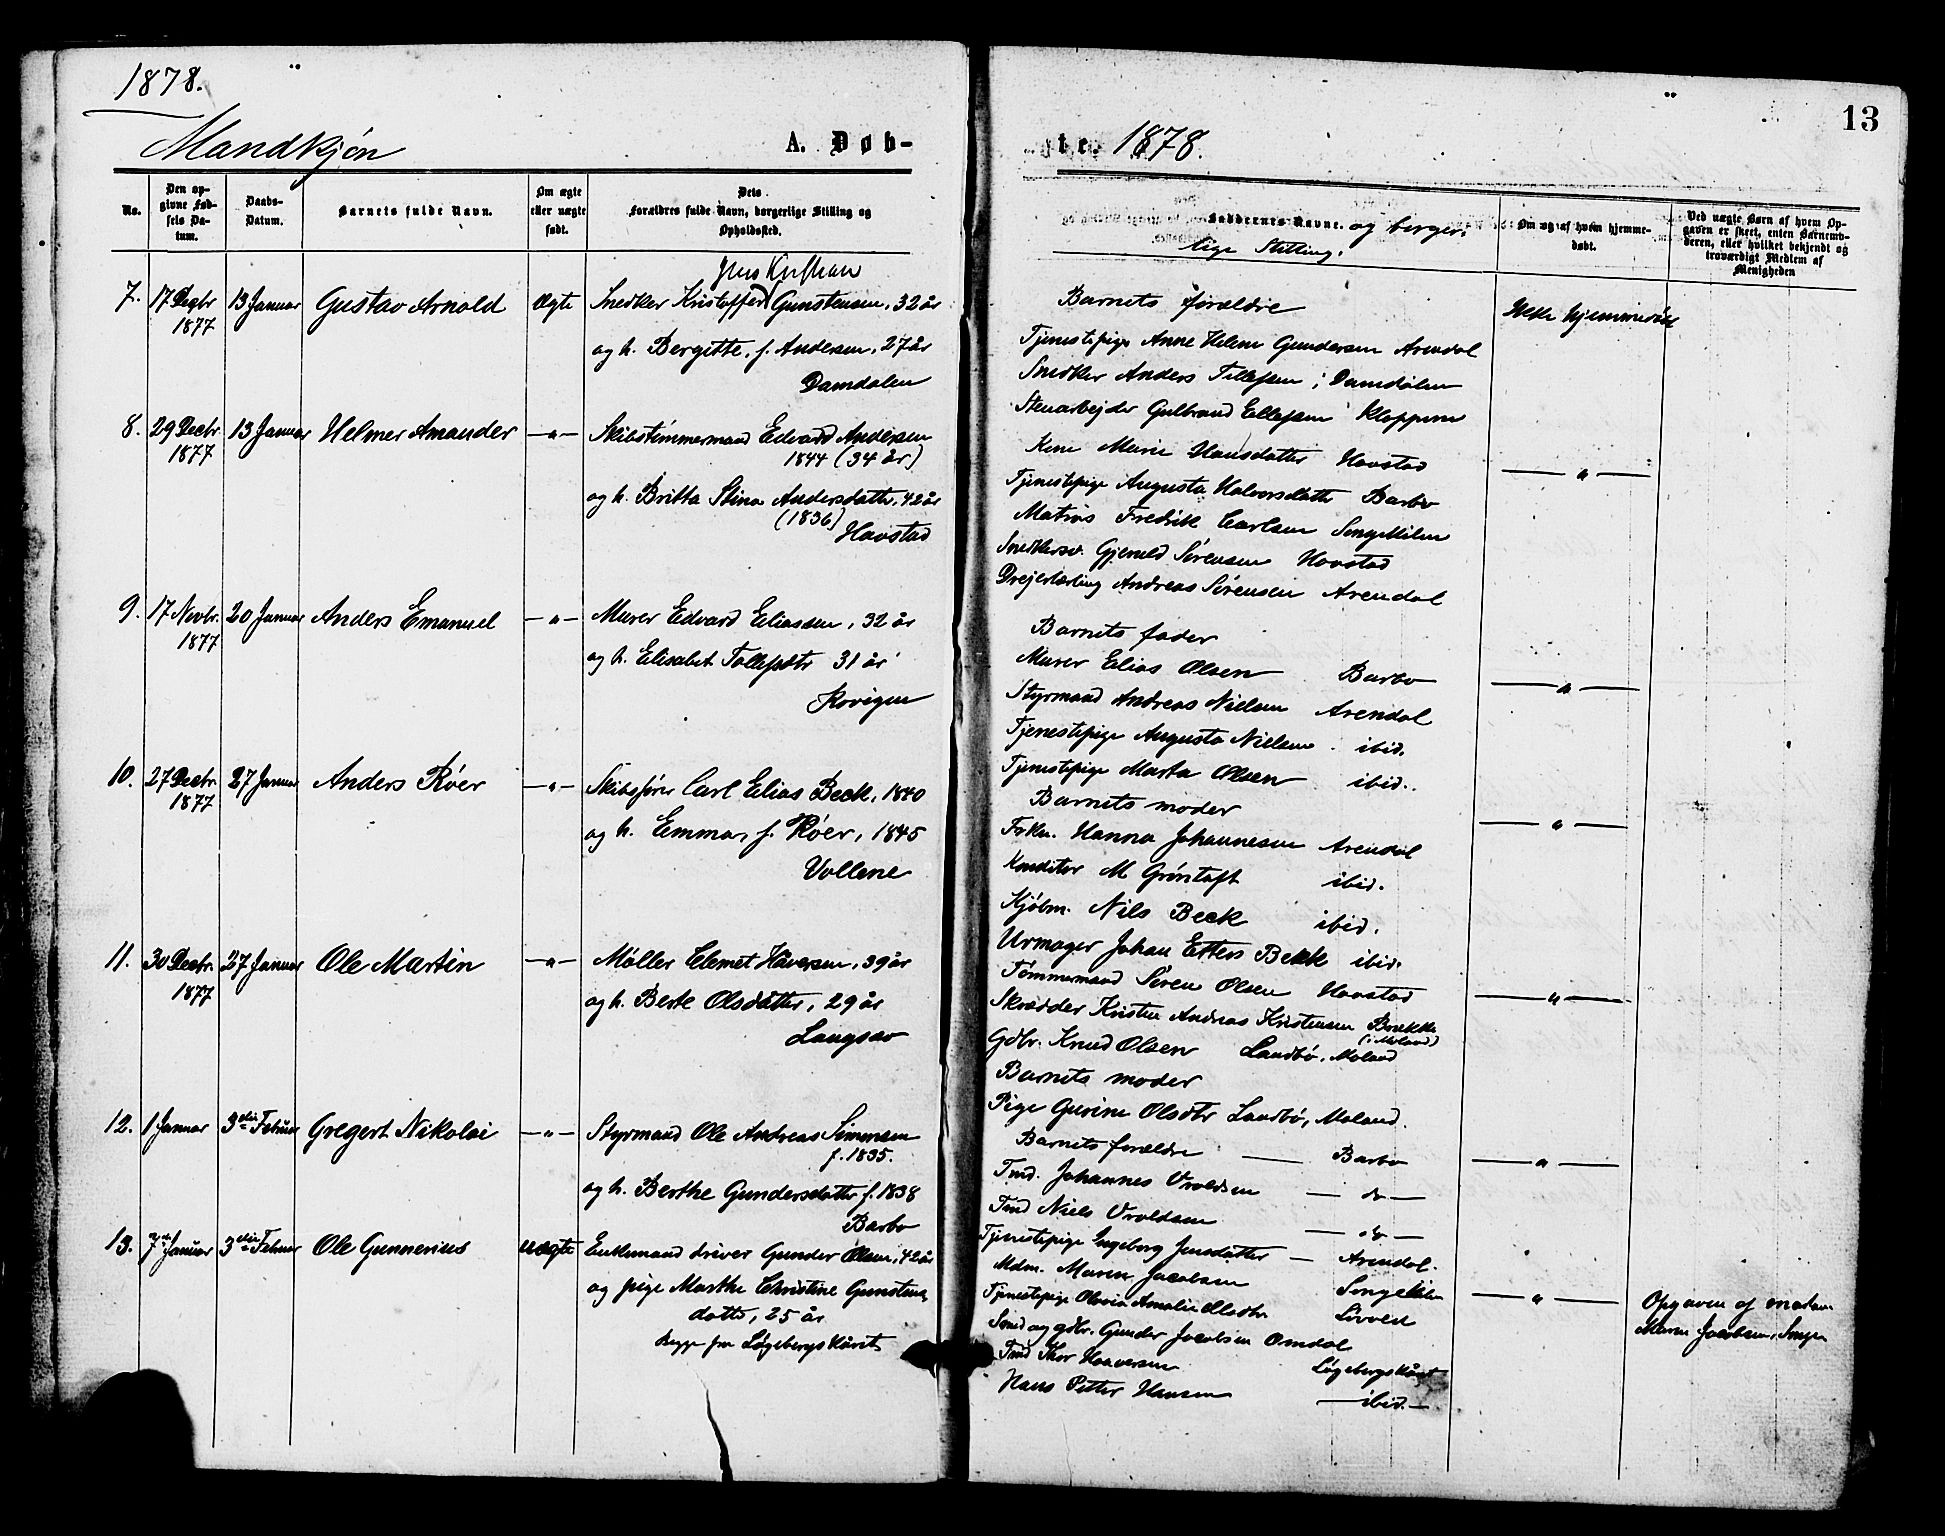 1878.
Mandkjön
A. Døb-
No.
Den op-
givne Fød-
sels Da-
tum.
Daabs-
Datum.
Barnets fulde Navn.
Om ægte
eller uægte
født.
Dets
Forældres fulde Navn, borgerlige Stilling og
Opholdssted.
7. 17 Decbr 1877
13 Januar
Gustav Arnold
Ægte
Snedker Kristoffer Gunstensen, 32 år
og h. Bergitte, f. Andersen, 27 år
Damdalen
8. 29 Decbr 1877
13 Januar
Helmer Amander
—"—
Skibstømmermand Edvard Andersen
1844 (34 år)
og h. Britta Stina Andersdatter, 42 år
(1836)
Havstad
9. 17 Novbr. 1877
20 Januar
Anders Emanuel
—"—
Murer Edvard Eliassen, 32 år
og h. Elisabet Tollefsdtr 31 år
Kovigen
10. 27 Decbr 1877
27 Januar
Anders Röer
—"—
Skibsfører Carl Elias Beck, 1840
og h. Emma, f. Röer, 1845
Vollene
11. 30 Decbr. 1877
27 Januar
Ole Martin
—"—
Møller Clemet Håversen, 39 år
og h. Berte Olsdatter, 29 år
Langsæv
12. 1 Januar
3die Februar
Gregert Nikolai
—"—
Styrmand Ole Andreas Simonsen
f. 1835.
og h. Berthe Gundersdatter f. 1838
Barbo
13. 7de Januar
3die Februar
Ole Gunnerius
uægte
Enkemand driver Gunder Olsen, 42 år
og pige Marthe Christine Gunstens
datter, 25 år
Begge fra Løgebergskåret
13
te. 1878.
Faddernes Navne. og borger-
lige Stilling.
Om og af hvem hjemme-
døbt.
Ved uægte Børn af hvem Op-
gaven er skeet, enten Barnemo-
deren, eller hvilket bekjendt og
troværdigt Medlem af
Menigheden
Barnets forældre
Ikke hjemmedøbt
Tjenestepige Anne Helene Gundersen Arendal
Snedker Anders Tellefsen i Damdalen
Stenarbejder Gulbrand Ellefsen Kloppene
Kone Marie Hansdatter Havstad
—"—
Tjenestepige Augusta Halvorsdatter Barbo
Matros Fredrik Carlsen Songekilen
Snedkersv. Gjeruld Sörensen Havstad
Drejerlærling Andreas Sörensen Arendal
Barnets fader
Murer Elias Olsen Barbo
—"—
Styrmand Andreas Nielsen Arendal
Tjenestepige Augusta Nielsen ibid.
Tjenestepige Marta Olsen ibid.
Barnets moder
—"—
Frkn. Hanna Johannesen Arendal
Konditor M Gröntoft ibid.
Kjöbm. Nils Beck ibid.
Urmager Johan Beck ibid.
Tömmermand Sören Olsen Havstad
—"—
Skrædder Kristen Andreas Kristensen Brekke
(i Moland)
Gdbr. Knud Olsen Landbö, Moland
Barnets moder
Pige Gurine Olsdtr Landbö, Moland.
Barnets forældre — Barbo
—"—
Tmd. Johannes Vroldsen — do —
Tmd Niels Vroldsen — do —
Tjenestepige Ingeborg Jensdatter — Arendal.
Mdm. Maren Jacobsen Songekilen
—"—
Opgaven af madam
Maren Jacobsen, Songe
Tjenestepige Olovia Amalie Olsdtr
Smed og gdbr. Gunder Jacobsen Omdal
Tmd Thor Haaversen Løgebergskåret
Hans Petter Hansen — ibid. —